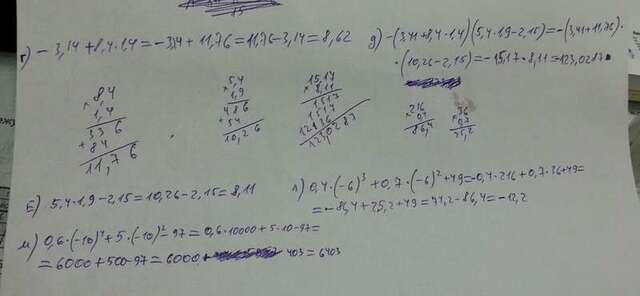 г) -3,14+8,4·1,4=-3,14+11,76=11,76-3,14=8,62
д) -(3,41+8,4·1,4)(5,4·1,9-2,15)=-(3,41+11,76)·
·(10,26-2,15)=-15,17·8,11=123,0287
8,4
×
1,4
336
+
84
11,76
5,4
×
1,9
486
+
54
10,26
15,17
×
8,11
1517
1517
12136
123,0287
216
×
0,4
86,4
36
×
0,7
25,2
Б) 5,4·1,9-2,15=10,26-2,15=8,11
л) 0,4·(-6)³+0,7·(-6)²+49=-0,4·216+0,7·36+49=
=-86,4+25,2+49=74,2-86,4=-12,2
м) 0,6·(-10)⁴+5·(-10)²-97=0,6·10000+5·10-97=
=6000+500-97=6000+403=6403